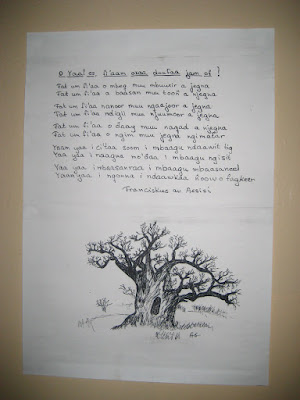 O Yaa' oo fi'aam oxaa doutaa jam of !
Fat um fi'aa o mbeg muu mbuucir a jegna
Fat um fi'aa o badson muu boof a njegna
Fat um fi'aa nanoor muu ngaajoor a jegna
Fat um fi'aa ndigil muu njuumeer a jegna
Fat um fi'aa o ɗoay muu nagad a njegna
Fat um fi'aa o ngimi muu jegna ngimatar
Yaan yaa i citaa soom i mbaagu ndaawit lig
Yaa yaa i naagna no'daa i mbaagu ngisit
Yaa yaa i mbetsanraa i mbaagu mbaasaneel
Yaan yaa i ngonna i ndaawkaa foowo fugkeer
Franciskus au Assisi